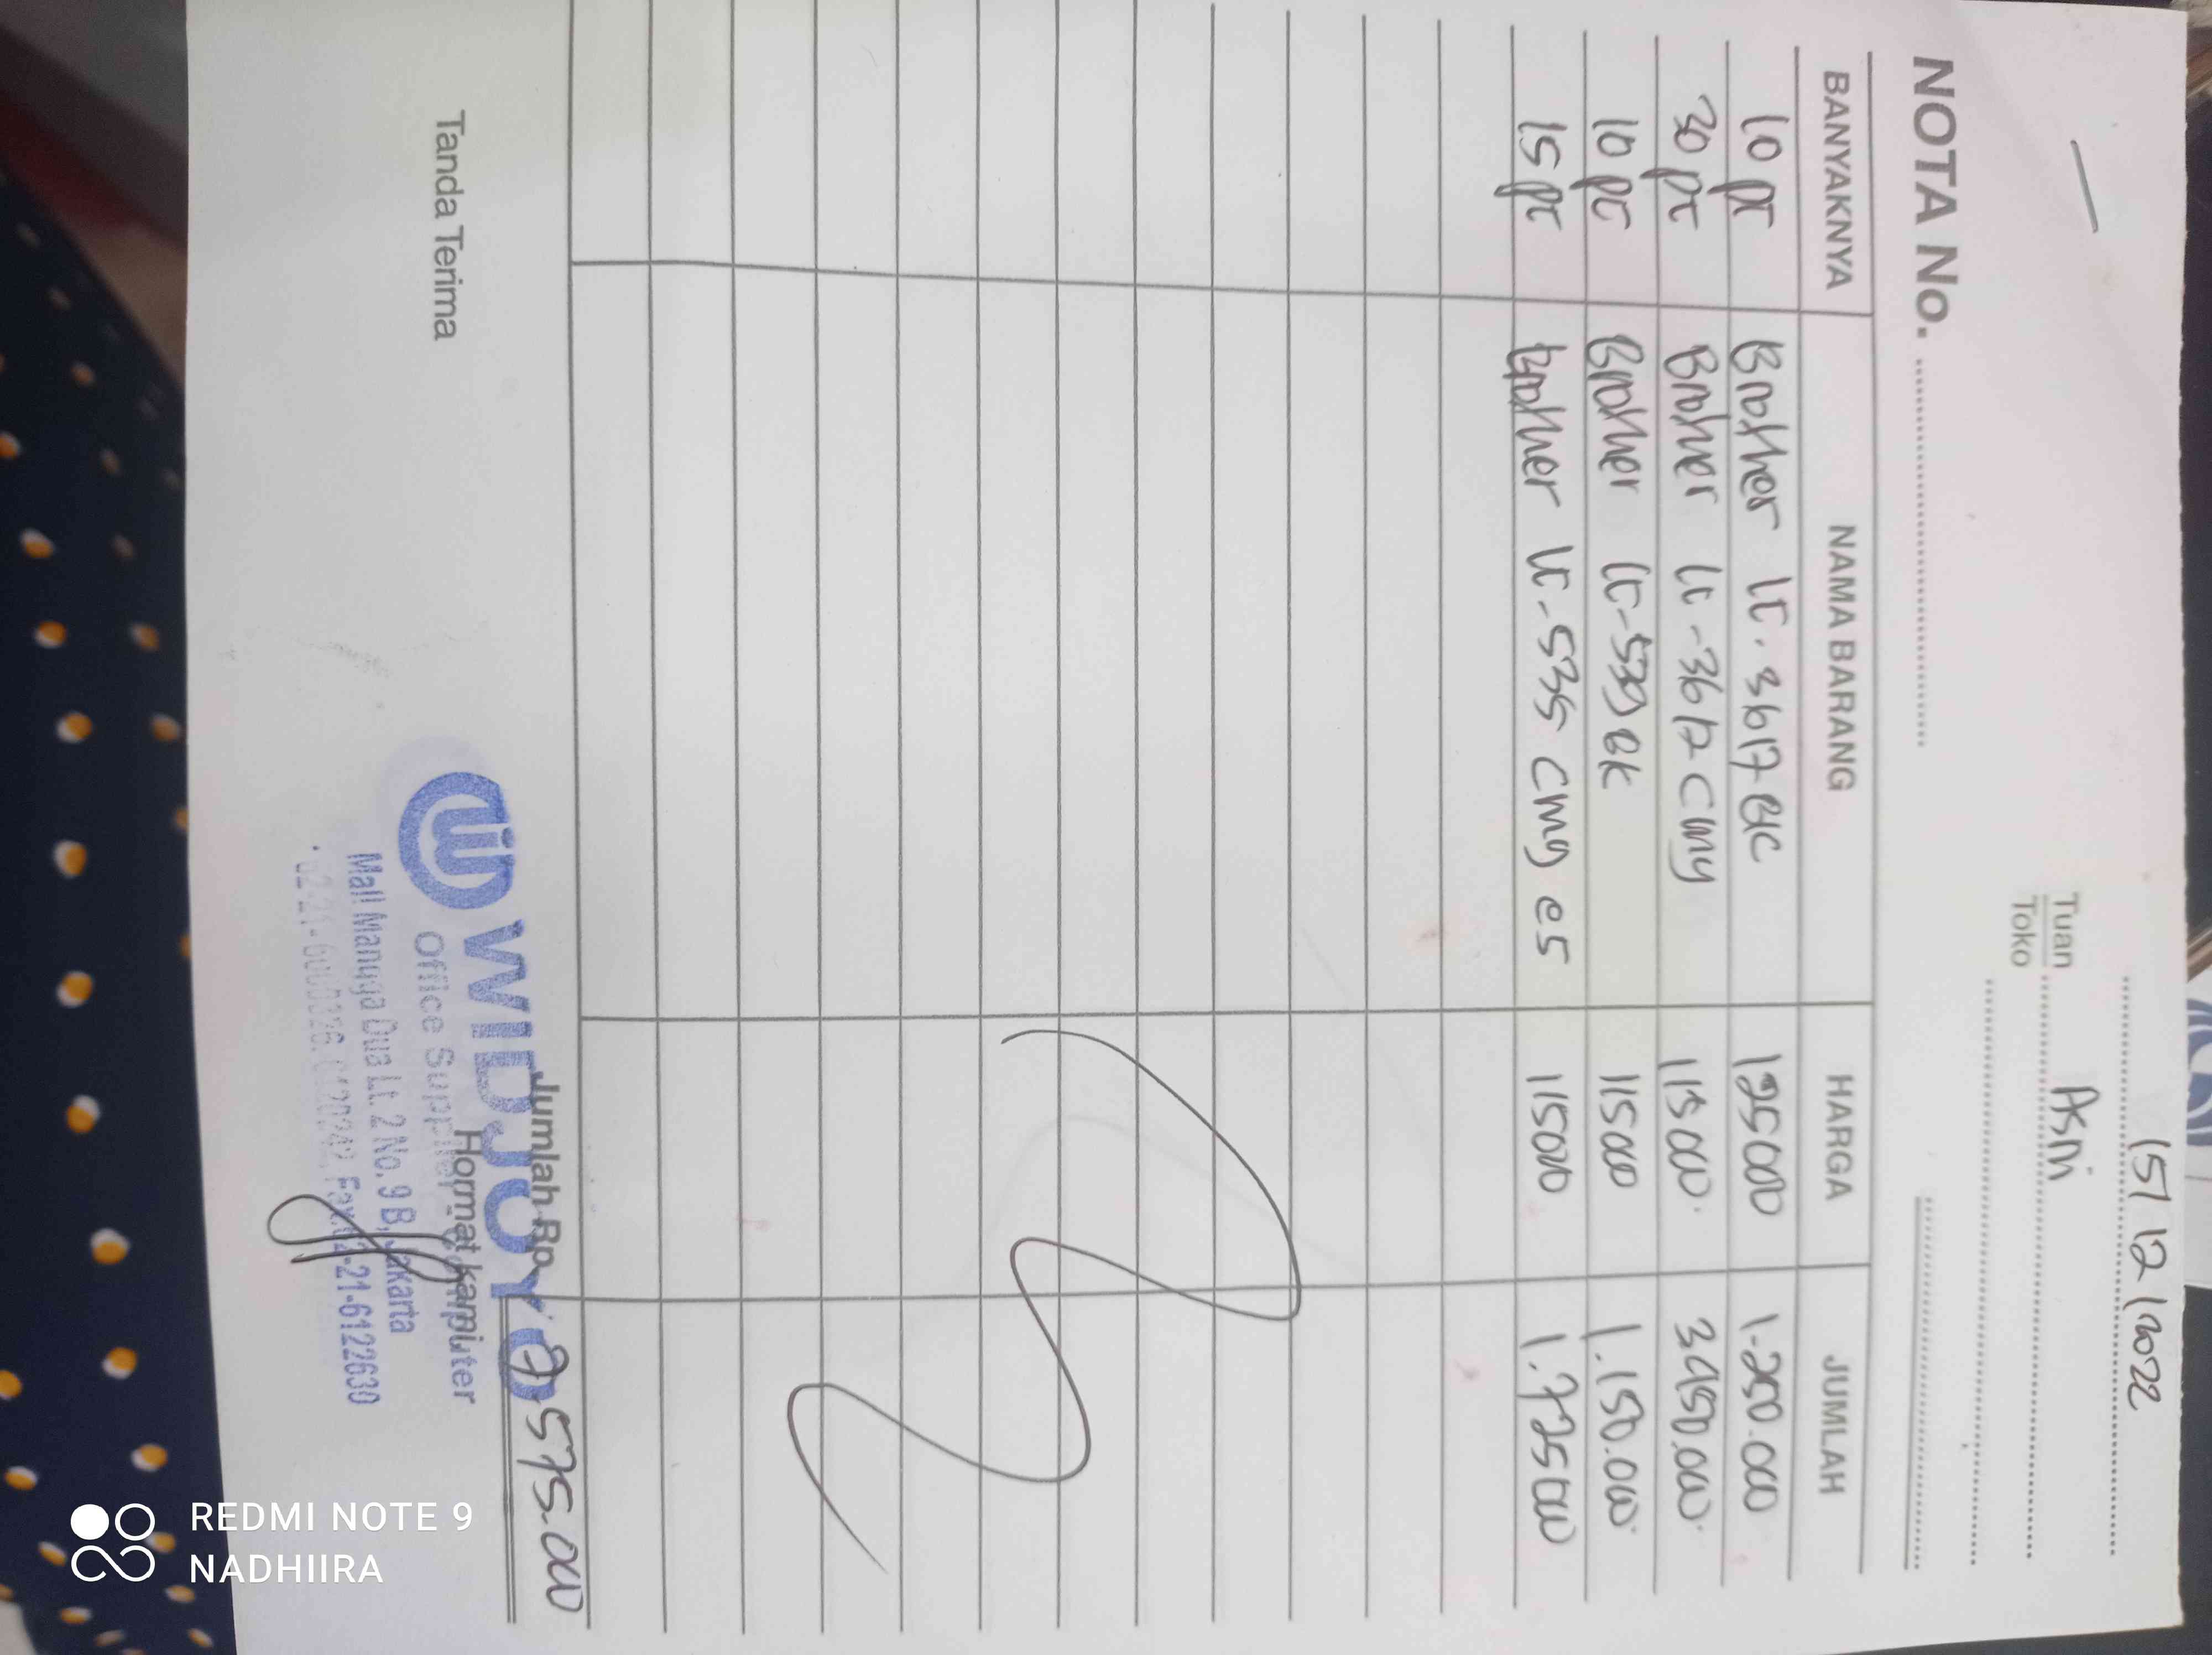 15/12/2022
Tuan Asni
Toko
NOTA No.
BANYAKNYA NAMA BARANG HARGA JUMLAH
10 pc Brother lc. 3617 BK 125000 1.250.000
30 pc Brother lc-3617 cmy 115000. 3450.000.
10 pc Brother lc-539 BK 115000 1.150.000.
15 pc Brother lc-535 cmy 115000 1.725000
Jumlah Rp. 7.575.000
Tanda Terima
Hormat kami
WIDJOYO
Office Supplier - Computer
Mall Mangga Dua Lt. 2 No. 9 B, Jakarta
Fax. 62-21-6122630
REDMI NOTE 9
NADHIIRA